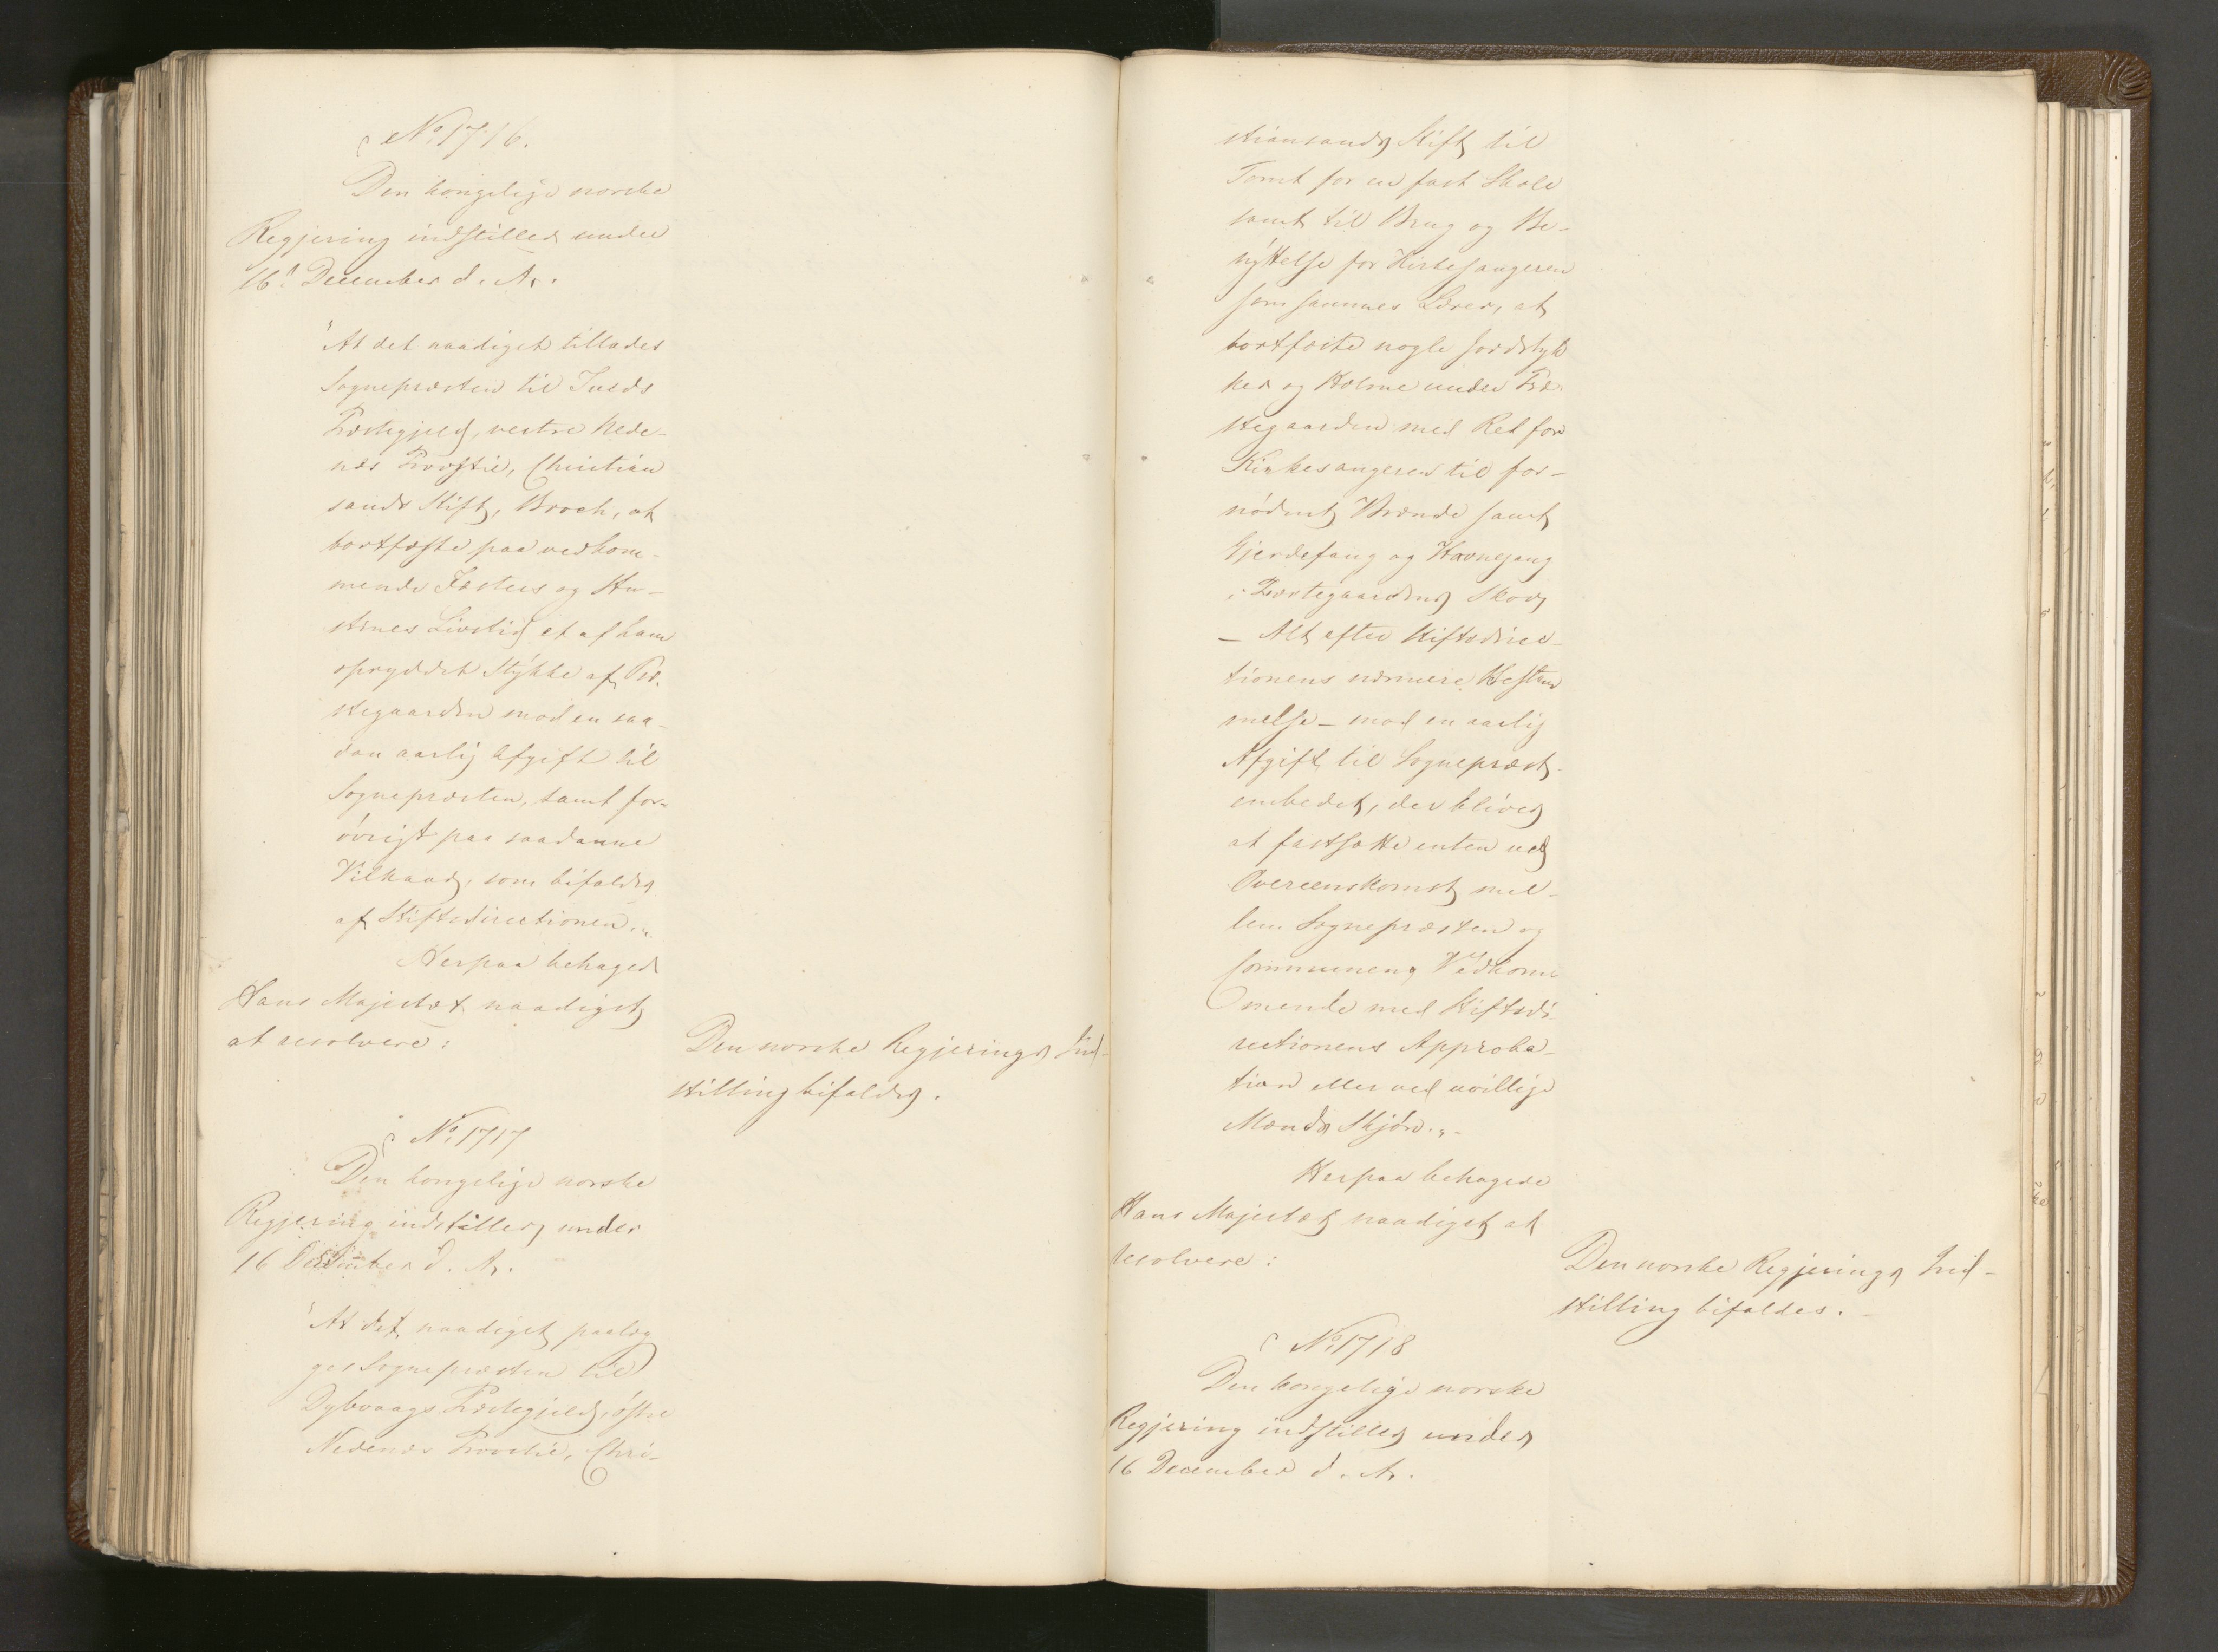 No. 1716.
Den kongelige norske
Regjering indstiller under
16. December d. A.
"At det naadigst tillades
Sognepræsten til Tveds
Præstegjeld, vestre Nede-
næs Provstie, Christian
sands Stift, Broch, at
bortfæste paa vedkom-
mende Fæsters og Hu-
struees Livstid et af ham
opryddet Stykke af Præ-
stegaarden mod en saa-
dan aarlig Afgift til
Sognepræsten, samt for-
øvrigt paa saadanne
Vilkaar, som bifaldes
af Stiftsdirectionen."
Herpaa behaged
Hans Majestæt naadigst
at resolvere:
Den norske Regjerings Ind-
stilling bifaldes.
No. 1717
Den kongelige norske
Regjering indstiller under
16 December d. A.
"At det naadigst paalæg
ges Sognepræsten til
Dybvaags Præstegjeld, østre
Nedenæs Provstie, Chri-
stiansands Stift, til
Tomt for en fast Skole
samt til Brug og Be-
nyttelse for Kirkesangeren
som sammes Lærer, at
bortfæste nogle Jordstyk
ker og Holme under Præ-
stegaarden med Ret for
Kirkesangeren til for-
nødent Brænde samt
Gjerdefang og Havnegang
i Præstegaardens Skov,
- Alt efter Stiftsdirec-
tionens nærmere Bestem
melse - mod en aarlig
Afgift til Sognepræst-
embedet, der bliver
at fastsætte enten ved
Overeenskomst mel-
lem Sognepræsten og
Communens Vedkom
mende med Stiftsdi-
rectionens Approba-
tion eller ved uvillige
Mænds Skjøn."-
Herpaa behagede
Hans Majestæt naadigst at
resolvere:
Den norske Regjerings Ind-
stilling bifaldes.
No. 1718
Den kongelige norske
Regjering indstiller under
16 December d. A.